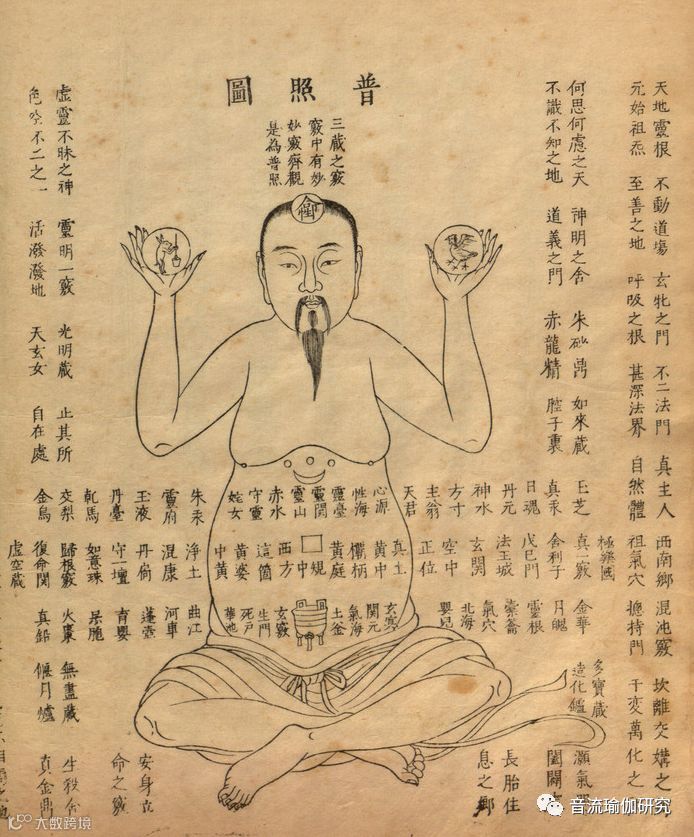 普照圖
三藏之竅
竅中有妙
妙竅齊觀
是為普照
天地靈根 不動道場 玄牝之門 不二法門 真主人 西南鄉 混沌竅 坎離交媾之
元始祖炁 至善之地 呼吸之根 甚深法界 自然體 祖氣穴 總持門 千變萬化之
何思何慮之天 神明之舍 朱砂鼎 如來藏
不識不知之地 道義之門 赤龍精 腔子裏
玉芝
真汞
日魂
丹元
神水
方寸
主翁
天君
心源
性海
靈臺
靈關
靈山
赤水
守靈
姹女
朱汞
靈府
玉液
丹臺
乾馬
交梨
金烏
極樂國
真一竅
舍利子
戊己門
法王城
玄關
空中
正位
真土
黃中
欛柄
黃庭
規
中
西方
這箇
黃婆
中黃
淨土
混康
丹扃
守一壇
如意珠
歸根竅
復命關
虛空藏
金華
月魄
靈根
氣穴
北海
嬰兒
玄冥
關元
氣海
土釜
玄竅
生門
死戶
華池
曲江
河車
蓬壺
育嬰
火棗
真鉛
多寶藏
灝氣
長胎住
息之鄉
安身立
命之竅
無盡藏
偃月爐
生殺
真金鼎
虛靈不昧之神 靈明一竅 光明藏 止其所
色空不二之一 活潑潑地 天玄女 自在處
音流瑜伽研究
大数跨境